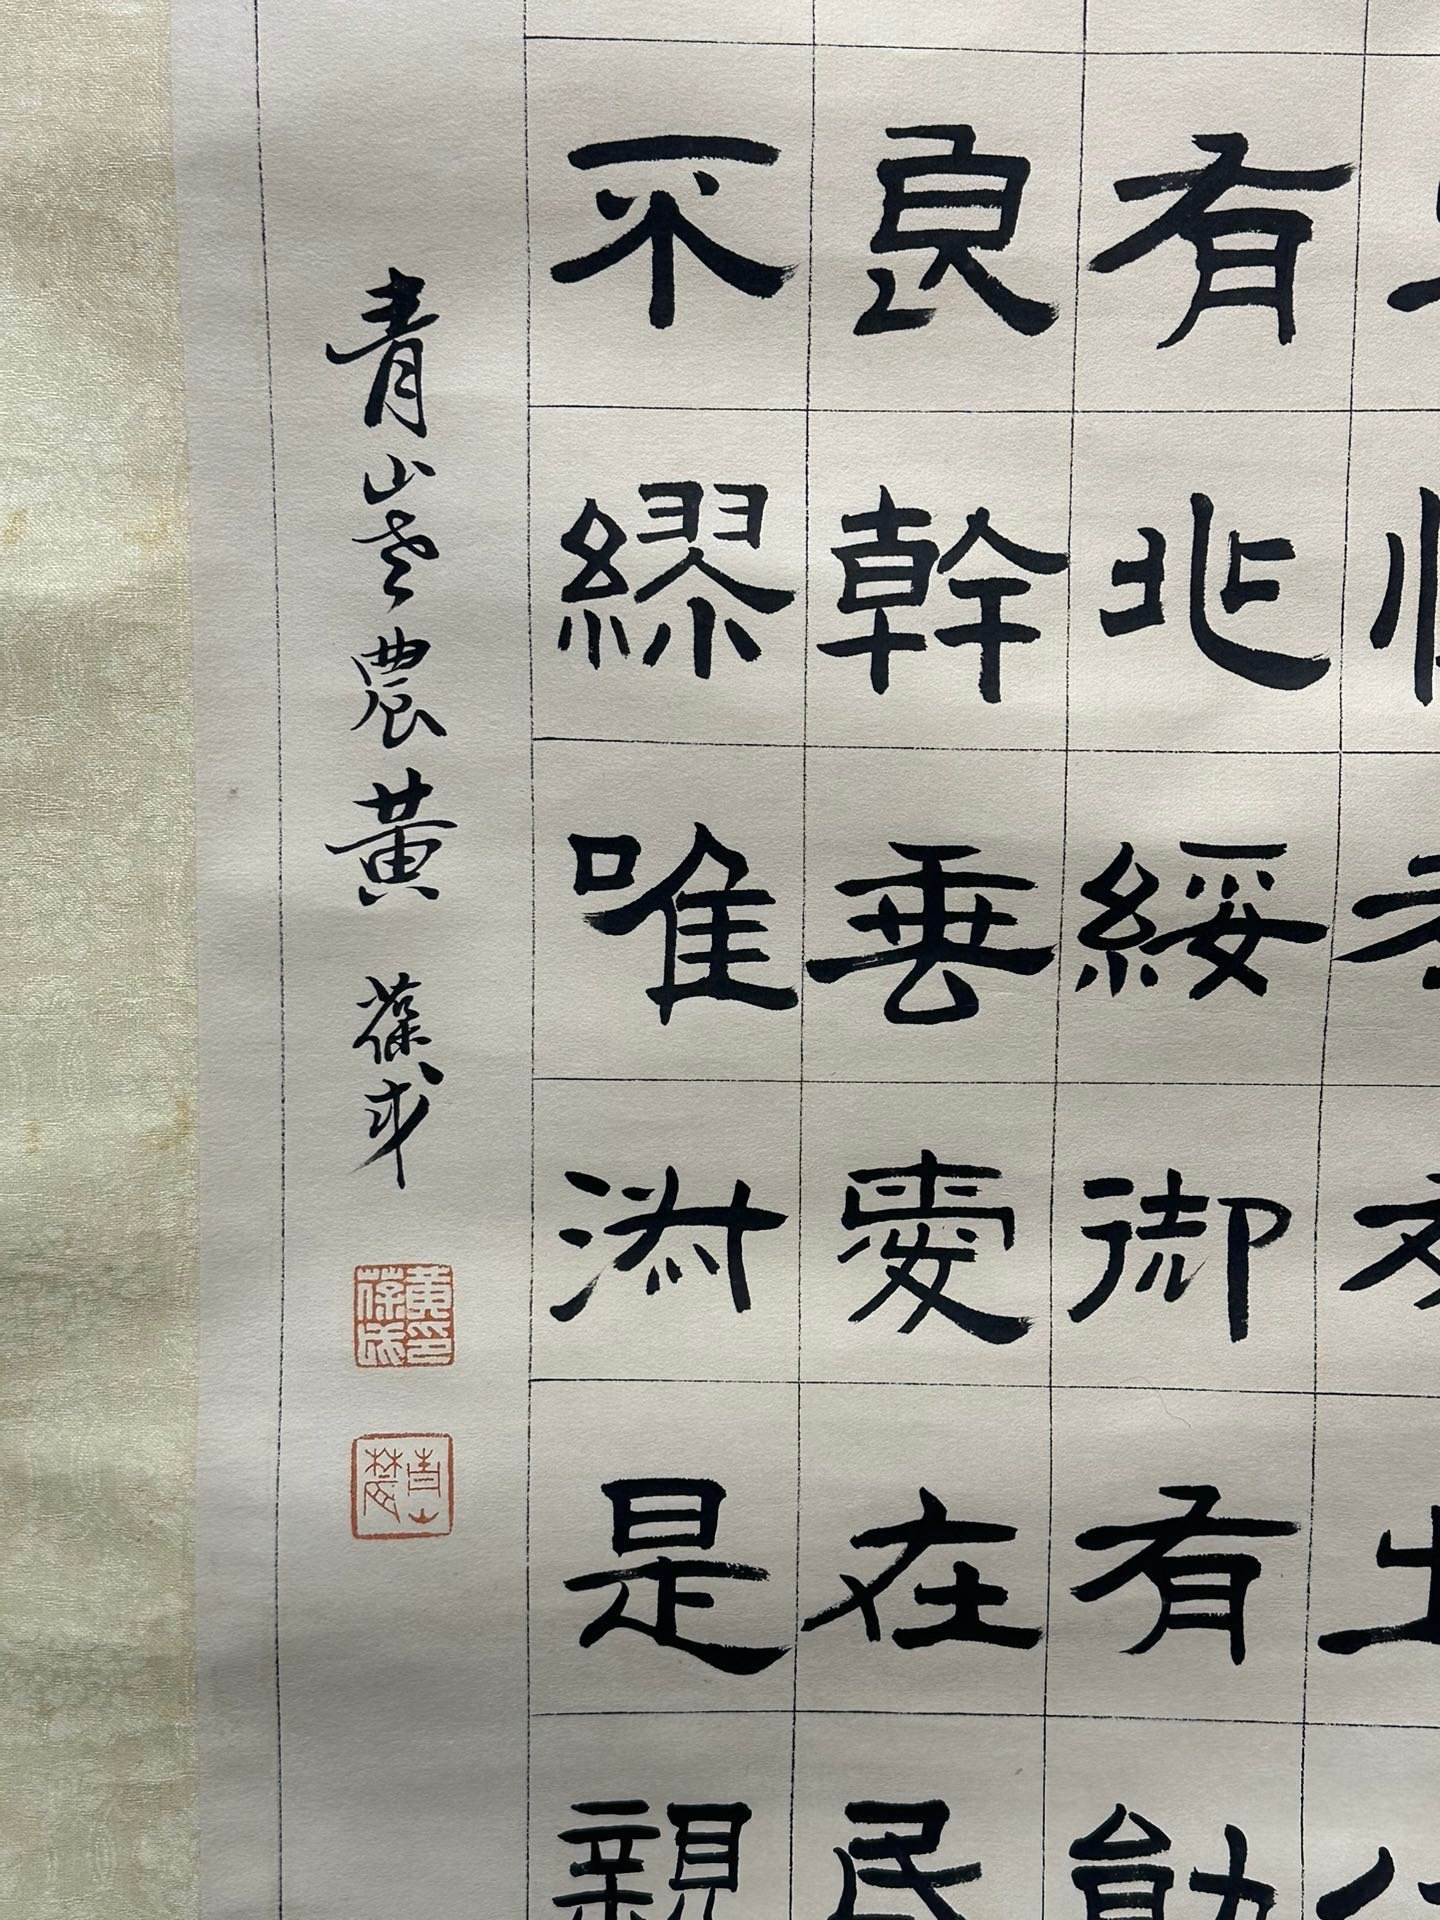 有兆綏御有勛
良幹垂愛在民
不繆唯淑是親
青山老農黃葆戉
黃葆戉印
青山農